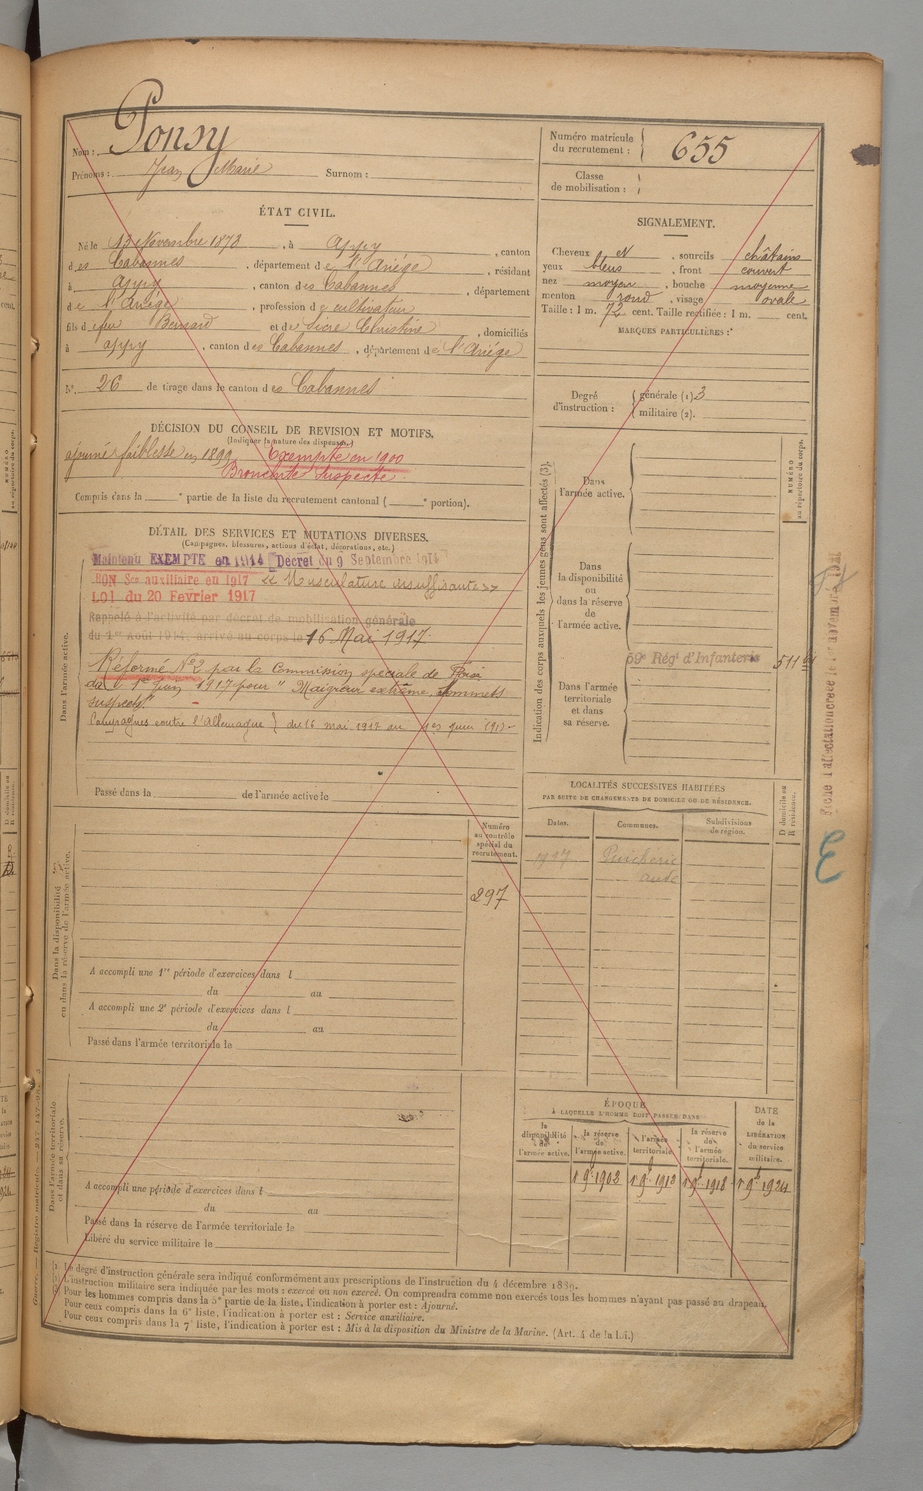 Nom : Ponsy
Prénoms : Jean Marie Surnom :
Numéro matricule du recrutement : 655
Classe de mobilisation :
ÉTAT CIVIL.
Né le 13 Novembre 1878, à Appy, canton
des Cabannes, département de l'Ariége, résidant
à Appy, canton des Cabannes, département
de l'Ariége, profession de cultivateur
fils de feu Bernard et de Sicre Christine, domiciliés
à appy, canton des Cabannes, département de l'Ariége
N° 26 de tirage dans le canton des Cabannes
SIGNALEMENT.
Cheveux N, sourcils châtains
yeux bleus, front couvert
nez moyen, bouche moyenne
menton rond, visage ovale
Taille : 1 m. 72 cent. Taille rectifiée : 1 m. cent.
MARQUES PARTICULIÈRES :
Degré d'instruction : générale (1) 3
militaire (2).
DÉCISION DU CONSEIL DE REVISION ET MOTIFS.
(Indiquer la nature des dispenses.)
ajourné faiblesse en 1899 Exempté en 1900
Bronchite suspecte
Compris dans la e partie de la liste du recrutement cantonal ( e portion).
DÉTAIL DES SERVICES ET MUTATIONS DIVERSES.
(Campagnes, blessures, actions d'éclat, décorations, etc.)
Maintenu EXEMPTÉ en 1914 Décret du 9 Septembre 1914
BON Sce auxiliaire en 1917 « Musculature insuffisante »
LOI du 20 Février 1917
Rappelé à l'activité par décret de mobilisation générale
du 1er Août 1914, arrivé au corps le 16 Mai 1917.
Réformé N°2 par la Commission spéciale de Foix
du 1er juin 1917 pour "Maigreur extrême, sommets
suspects"
Campagnes contre l'Allemagne } du 16 mai 1917 au 1er juin 1917
Passé dans la de l'armée active le
Dans l'armée active.
Indication des corps auxquels les jeunes gens sont affectés (3).
NUMÉRO au répertoire du corps.
Dans l'armée active.
Dans la disponibilité ou dans la réserve de l'armée active.
59e Régt d'Infanterie
Dans l'armée territoriale et dans sa réserve.
LOCALITÉS SUCCESSIVES HABITÉES
PAR SUITE DE CHANGEMENTS DE DOMICILE OU DE RÉSIDENCE.
Dates. Communes. Subdivisions de région. D domicile ou R résidence.
1917 Puichéric
aude
Numéro au contrôle spécial du recrutement.
297
Dans la disponibilité ou dans la réserve de l'armée active.
A accompli une 1re période d'exercices dans l
du au
A accompli une 2e période d'exercices dans l
du au
Passé dans l'armée territoriale le
Dans l'armée territoriale et dans sa réserve.
A accompli une période d'exercices dans l
du au
Passé dans la réserve de l'armée territoriale le
Libéré du service militaire le
ÉPOQUE
À LAQUELLE L'HOMME DOIT PASSER DANS
la disponibilité de l'armée active. la réserve de l'armée active. l'armée territoriale. la réserve de l'armée territoriale. DATE de la LIBÉRATION du service militaire.
(1) Le degré d'instruction générale sera indiqué conformément aux prescriptions de l'instruction du 4 décembre 1889.
(2) L'instruction militaire sera indiquée par les mots : exercé ou non exercé. On comprendra comme non exercés tous les hommes n'ayant pas passé au drapeau.
(3) Pour les hommes compris dans la 5e partie de la liste, l'indication à porter est : Ajourné.
Pour ceux compris dans la 6e liste, l'indication à porter est : Service auxiliaire.
Pour ceux compris dans la 7e liste, l'indication à porter est : Mis à la disposition du Ministre de la Marine. (Art. 4 de la Loi.)